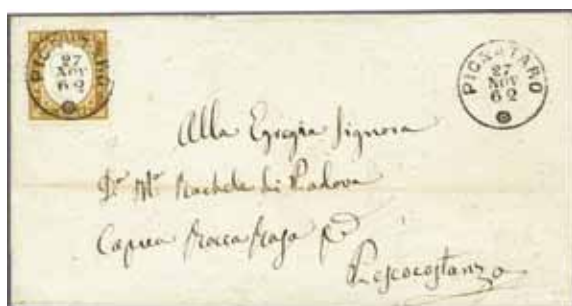 PIGNATARO
27
NOV
62
PIGNATARO
27
NOV
62
Alla Egregia Signora
Dª Mª Rachele di Padova
Capua Roccarasa pᵉʳ
Pescocostanzo